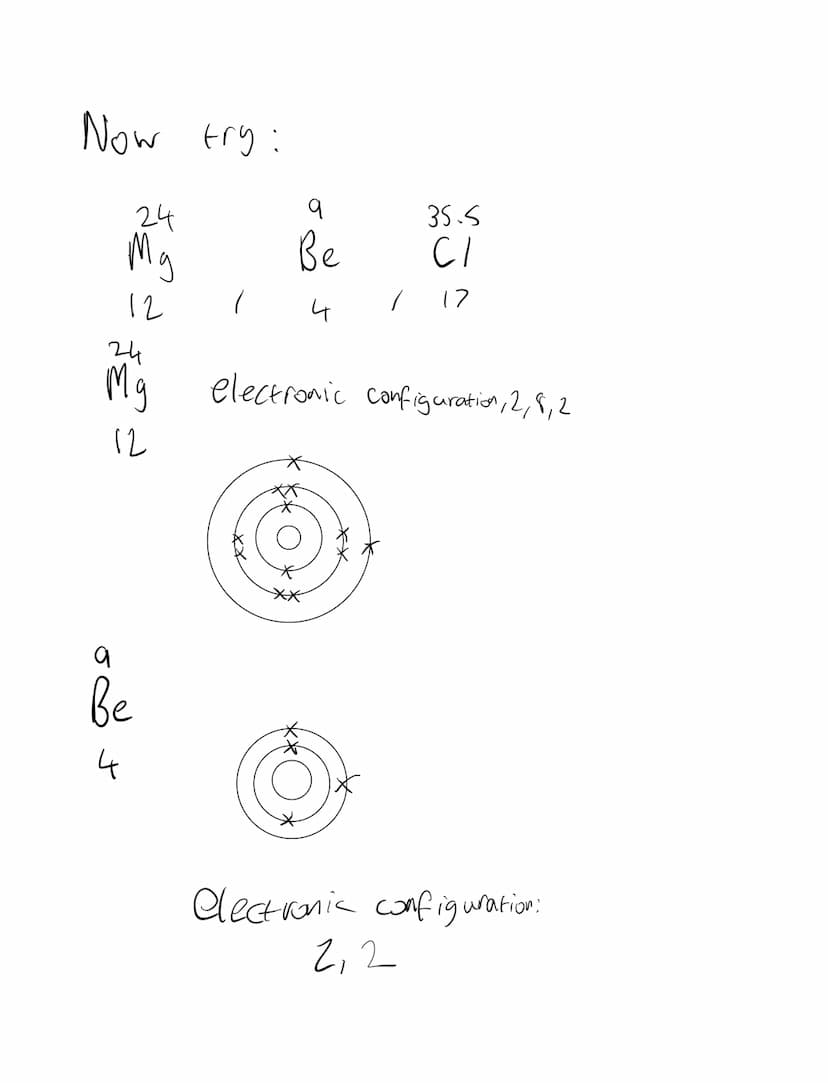 Now try:
24 9 35.5
Mg Be Cl
12 , 4 , 17
24
Mg electronic configuration, 2, 8, 2
12
9
Be
4
electronic configuration:
2, 2